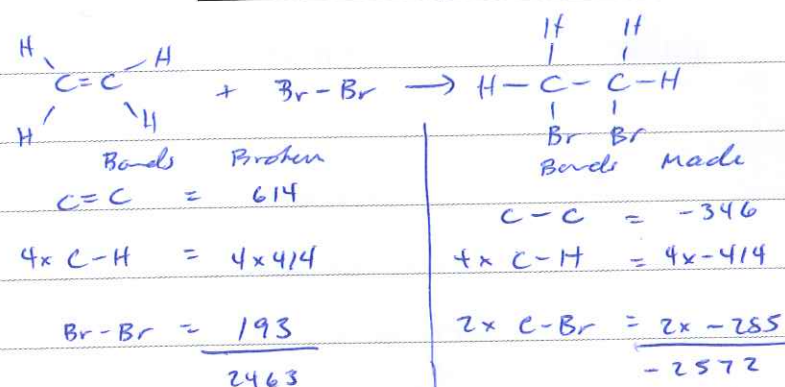 H H
H H
C=C + Br-Br → H-C-C-H
H H Br Br
Bonds Broken
C=C = 614
4x C-H = 4x414
Br-Br = 193
2463
Bonds Made
C-C = -346
4x C-H = 4x-414
2x C-Br = 2x -285
-2572